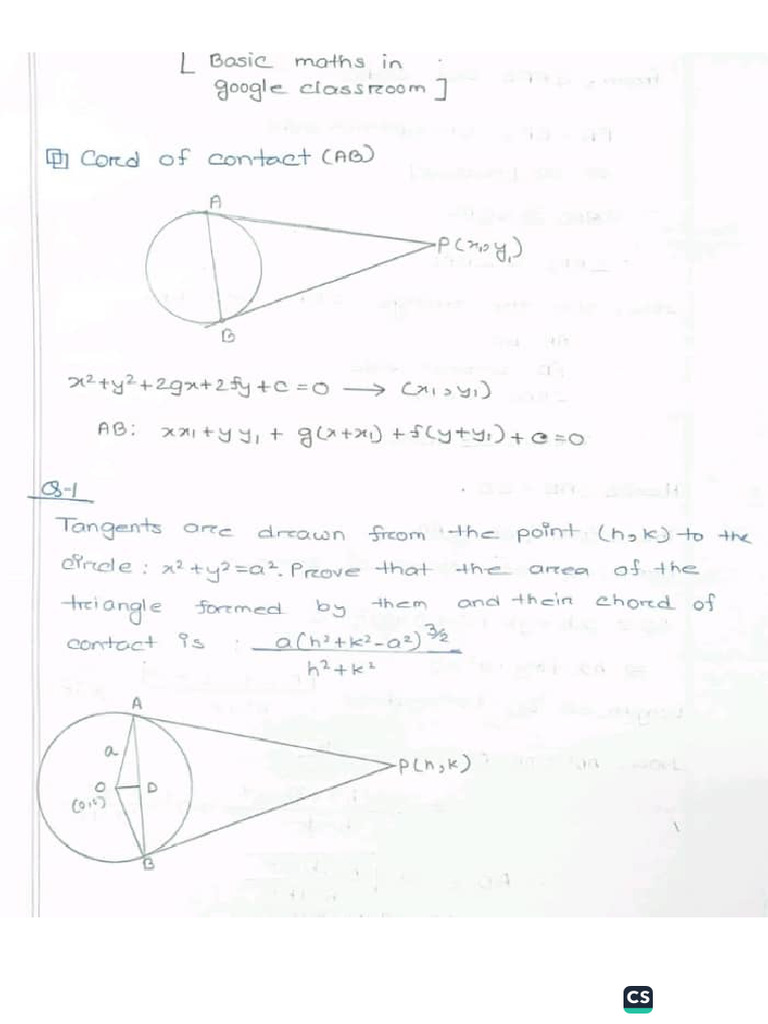 [ Basic maths in
google classroom ]
Cord of contact (AB)
A
P(x₁, y₁)
B
x²+y²+2gx+2fy+c=0 → (x₁, y₁)
AB: xx₁+yy₁ + g(x+x₁) + f(y+y₁) + c = 0
Q-1
Tangents are drawn from the point (h, k) to the
circle: x²+y²=a². Prove that the area of the
triangle formed by them and their chord of
contact is : a(h²+k²-a²)^3/2
h²+k²
A
a
P(h, k)
O D
(0,0)
B
CS